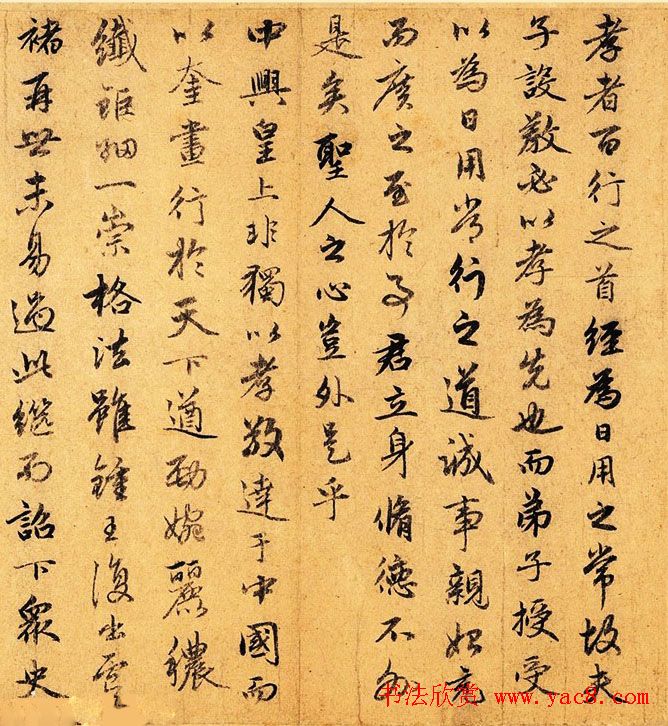 孝者百行之首經為日用之常故夫
子設教必以孝為先也而弟子授受
以為日用常行之道誠事親始充
而廣之至於事君立身脩德不外
是矣聖人之心豈外是乎
中興皇上非獨以孝敬達于中國而
以奎畫行於天下遒勁婉麗穠
纖鉅細一崇格法雖鍾王復出虞
褚再世未易過此繼而詔下眾史
书法欣赏 www.yac8.com